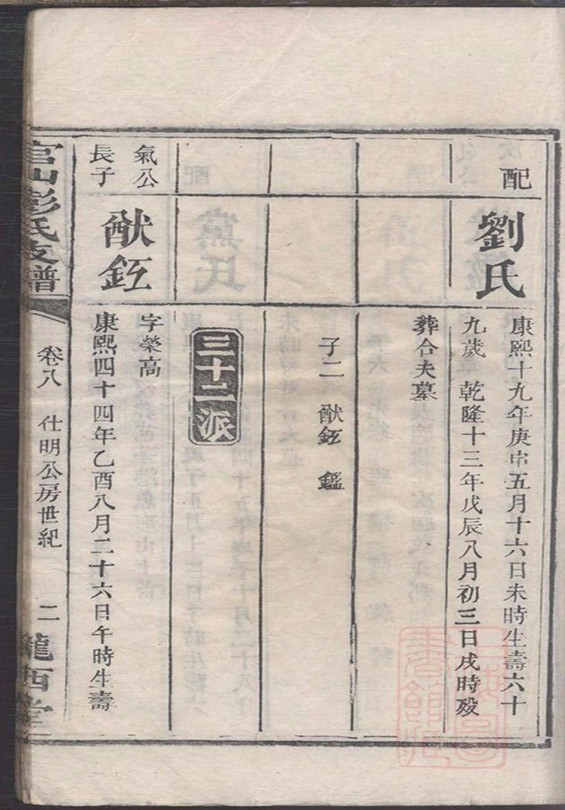 配
劉氏
康熙十九年庚申五月十六日未時生壽六十
九歲 乾隆十三年戊辰八月初三日戌時歿
葬合夫墓
子二 猷鉅 鑑
三十二派
氣公
長子
猷鉅
字榮高
康熙四十四年乙酉八月二十六日午時生壽
官山彭氏支譜
卷八 仕明公房世紀
二
隴西堂